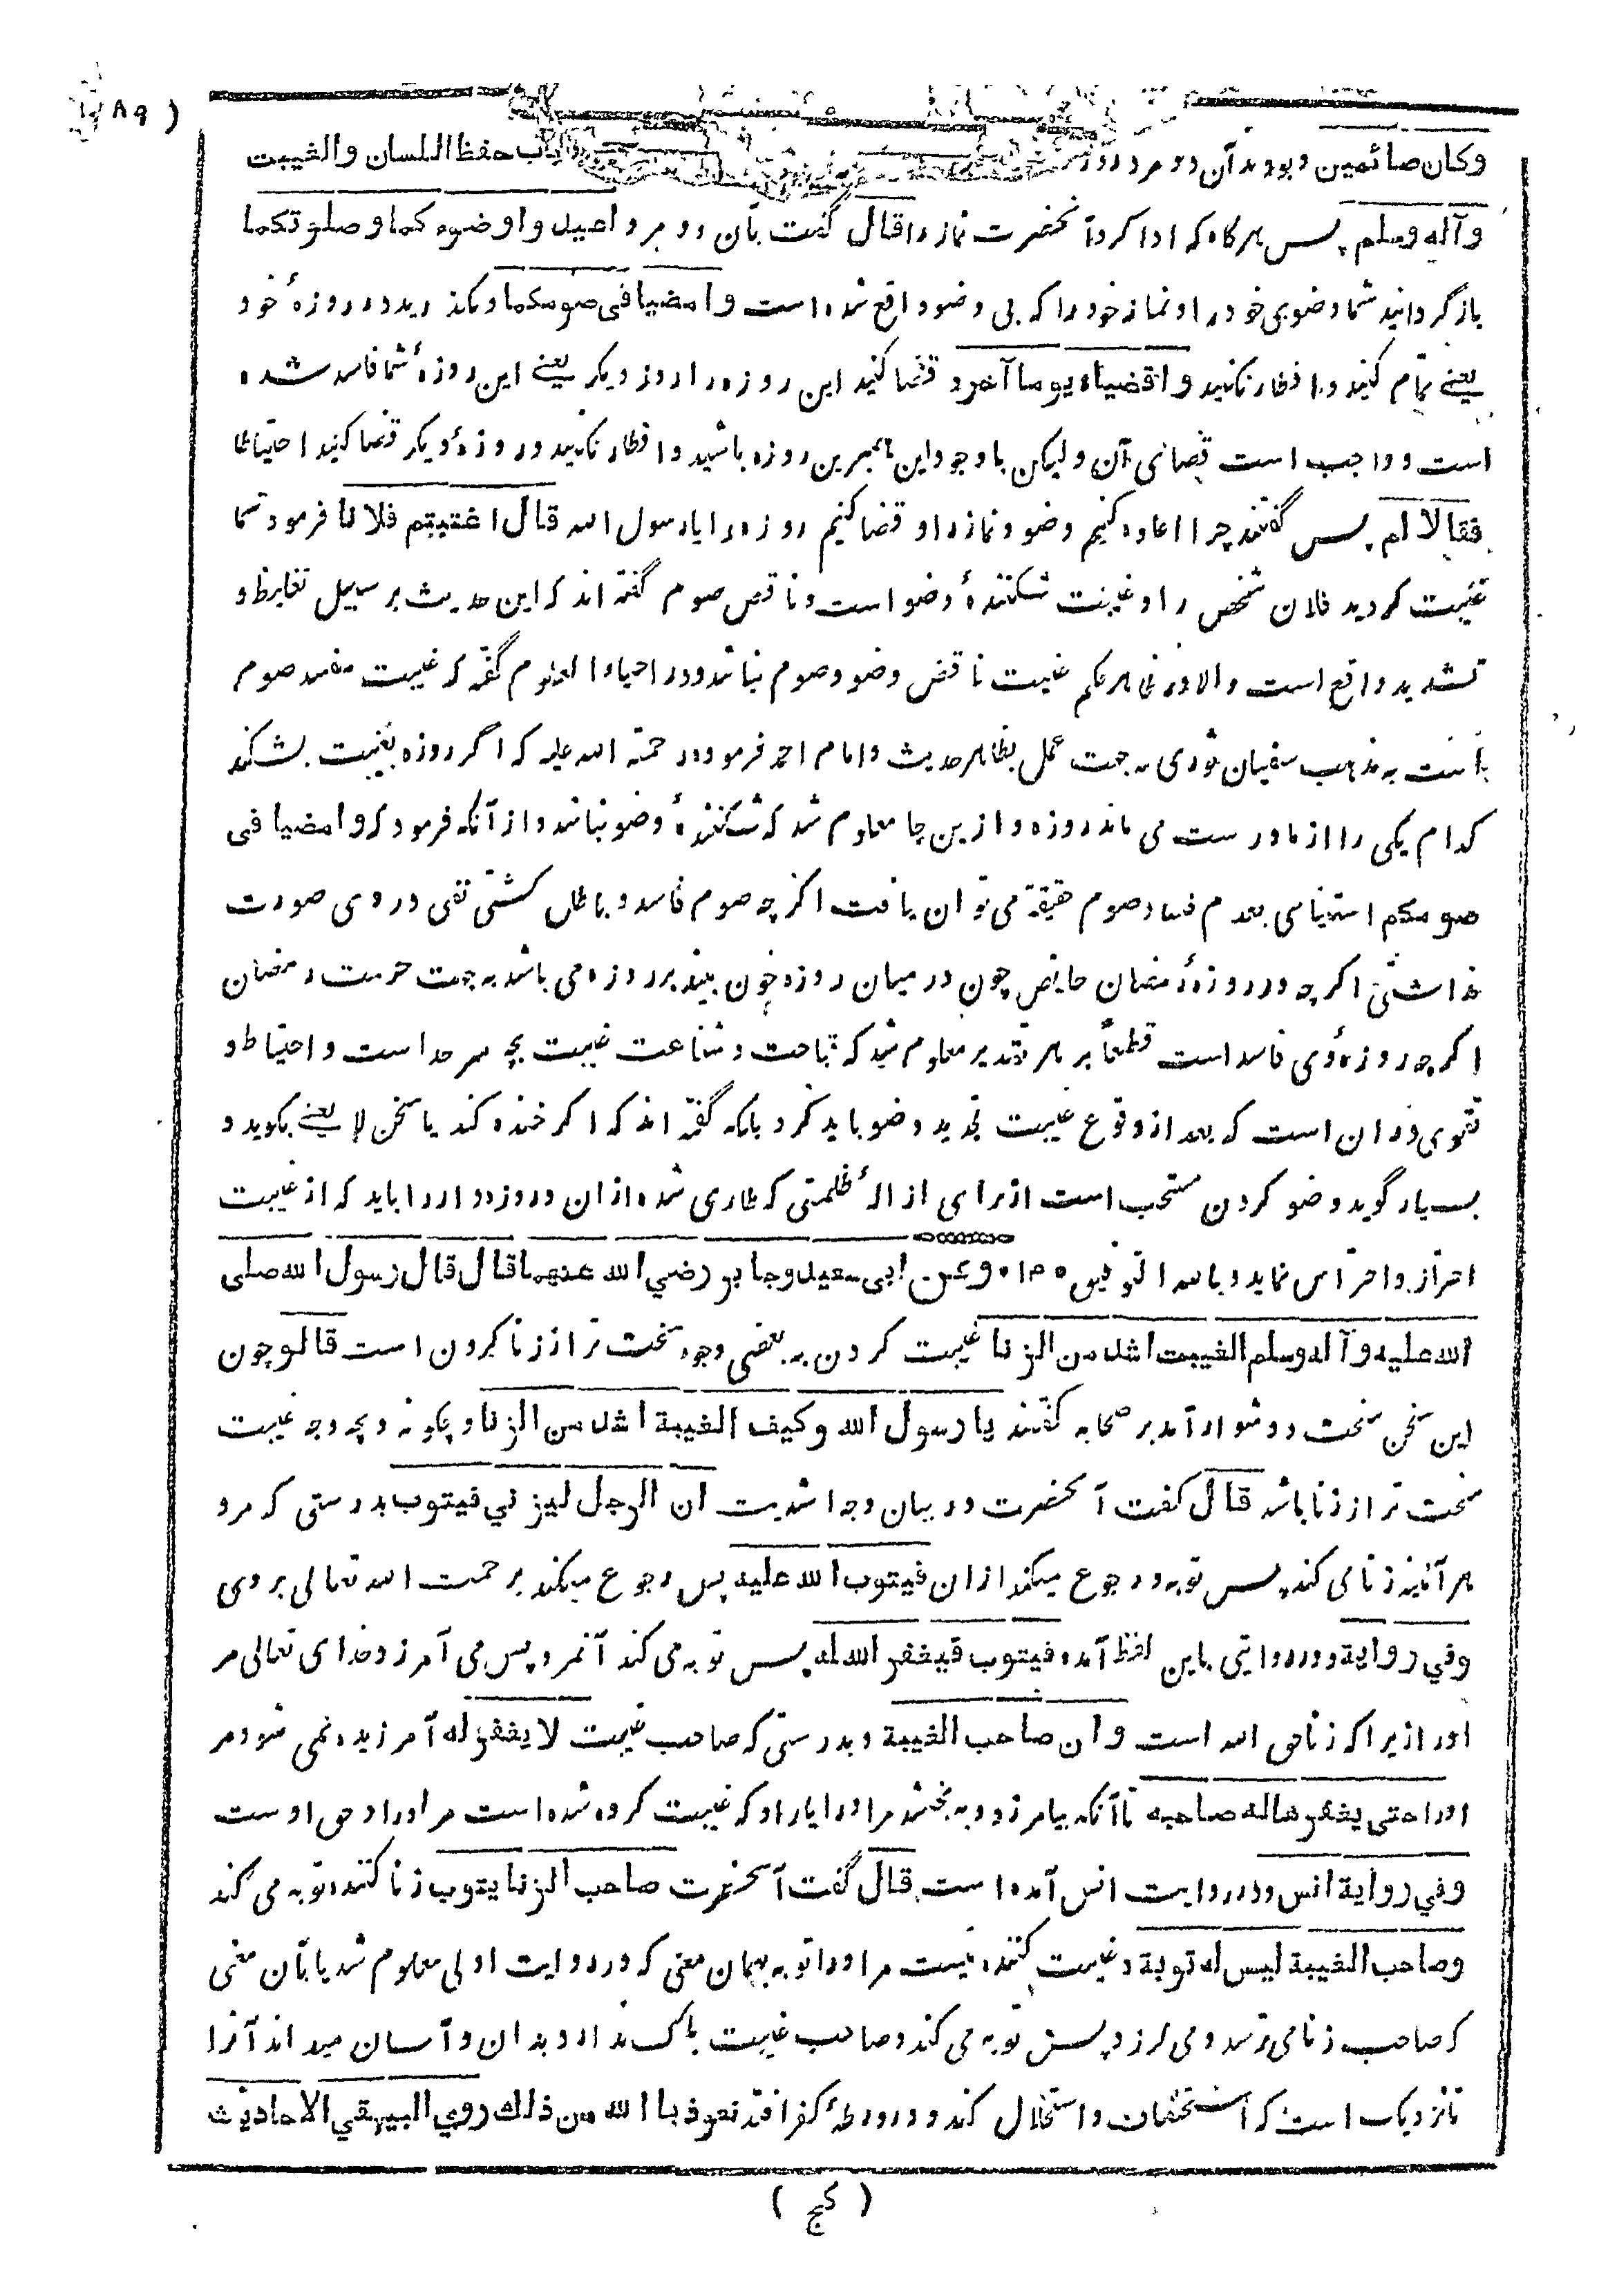 ( ٨٩
وكان صائمين و بودند آن دو مرد روزه باب حفظ اللسان والغيبت
وآله وسلم پس هرگاه كه ادا كرد آنحضرت نماز را قال گفت بآن دو مرد اعيدا وضوءكما وصلوتكما
باز گردانيد شما وضوى خود را و نماز خود را كه بى وضو واقع شده است وامضيا فى صومكما و بگذريد در روزهٔ خود
يعنے تمام كنيد و افطار نكنيد واقضياه يوما آخر و قضا كنيد اين روزه را روز ديگر يعنے اين روزهٔ شما فاسد شده
است و واجب است قضاى آن وليكن با وجود اين همبرين روزه باشيد و افطار نكنيد و روزهٔ ديگر قضا كنيد احتياطا
فقالا لم پس گفتند چرا اعاده كنيم وضو و نماز را و قضا كنيم روزه را يا رسول الله قال اغتبتم فلانا فرمود شما
غيبت كرديد فلان شخص را و غيبت شكنندهٔ وضو است و ناقص صوم گفته اند كه اين حديث بر سبيل تغليظ و
تشديد واقع است والا در ظاهر حكم غيبت ناقض وضو و صوم نباشد و در احياء العلوم گفته كه غيبت مفسد صوم
است به مذهب سفيان ثورى به جهت عمل بظاهر حديث و امام احمد فرمود رحمة الله عليه كه اگر روزه بغيبت بشكند
كدام يكى را از ما درست مى ماند روزه و ازين جا معلوم شد كه شكنندهٔ وضو نباشد و از آنكه فرمود كه وامضيا فى
صومكم استيناسى بعدم فساد صوم حقيقة مى توان يافت اگرچه صوم فاسد و باطل گشتى نفى در وى صورت
نداشتى اگرچه در روزهٔ رمضان حايض چون در ميان روزه خون بيند بر روزه مى باشد به جهت حرمت رمضان
اگرچه روزهٔ وى فاسد است قطعاً بر هر تقدير معلوم شد كه قباحت و شناعت غيبت بچه سرحد است و احتياط و
تقوى در ان است كه بعد از وقوع غيبت تجديد وضو بايد كرد بلكه گفته اند كه اگر خنده كند يا سخن لا يعنے بگويد و
بسيار گويد وضو كردن مستحب است از براى ازالهٔ ظلمتى كه طارى شده از ان و روزه دار را بايد كه از غيبت
احتراز و احتراس نمايد و بالله التوفيق وعن ابى سعيد وجابر رضي الله عنهما قال قال رسول الله صلى
الله عليه وآله وسلم الغيبت اشد من الزنا غيبت كردن به بعضى وجوه سخت تر از زنا كردن است قالو چون
اين سخن سخت و دشوار آمد بر صحابه گفتند يا رسول الله وكيف الغيبة اشد من الزنا و چگونه و بچه وجه غيبت
سخت تر از زنا باشد قال گفت آنحضرت در بيان وجه اشديت ان الرجل ليزني فيتوب بدرستى كه مرد
هر آئينه زنا مى كند پس توبه و رجوع ميكند از ان فيتوب الله عليه پس رجوع ميكند برحمت الله تعالى بر وى
وفي رواية و در روايتى باين لفظ آمده فيتوب فيغفر الله له پس توبه مى كند آنمرد پس مى آمرزد خداى تعالى مر
اورا زيرا كه زنا حق الله است وان صاحب الغيبة و بدرستى كه صاحب غيبت لا يغفر له آمرزيده نمى شود مر
اورا حتى يغفرها له صاحبه تا آنكه بيامرزد و به بخشد مر اورا يار او كه غيبت كرده شده است مر اورا و حق اوست
وفي رواية انس و در روايت انس آمده است قال گفت آنحضرت صاحب الزنا يتوب زنا كننده توبه مى كند
وصاحب الغيبة ليس له توبة و غيبت كننده نيست مر اورا توبه بهمان معنى كه در روايت اولى معلوم شد يا بآن معنى
كه صاحب زنا مى ترسد و مى لرزد پس توبه مى كند و صاحب غيبت باك ندارد بدان و آسان ميداند آنرا
تا نزديك است كه استخفاف و استحلال كند و در ورطهٔ كفر افتد نعوذ باالله من ذلك روي البيهقي الاحاديث
( كج )